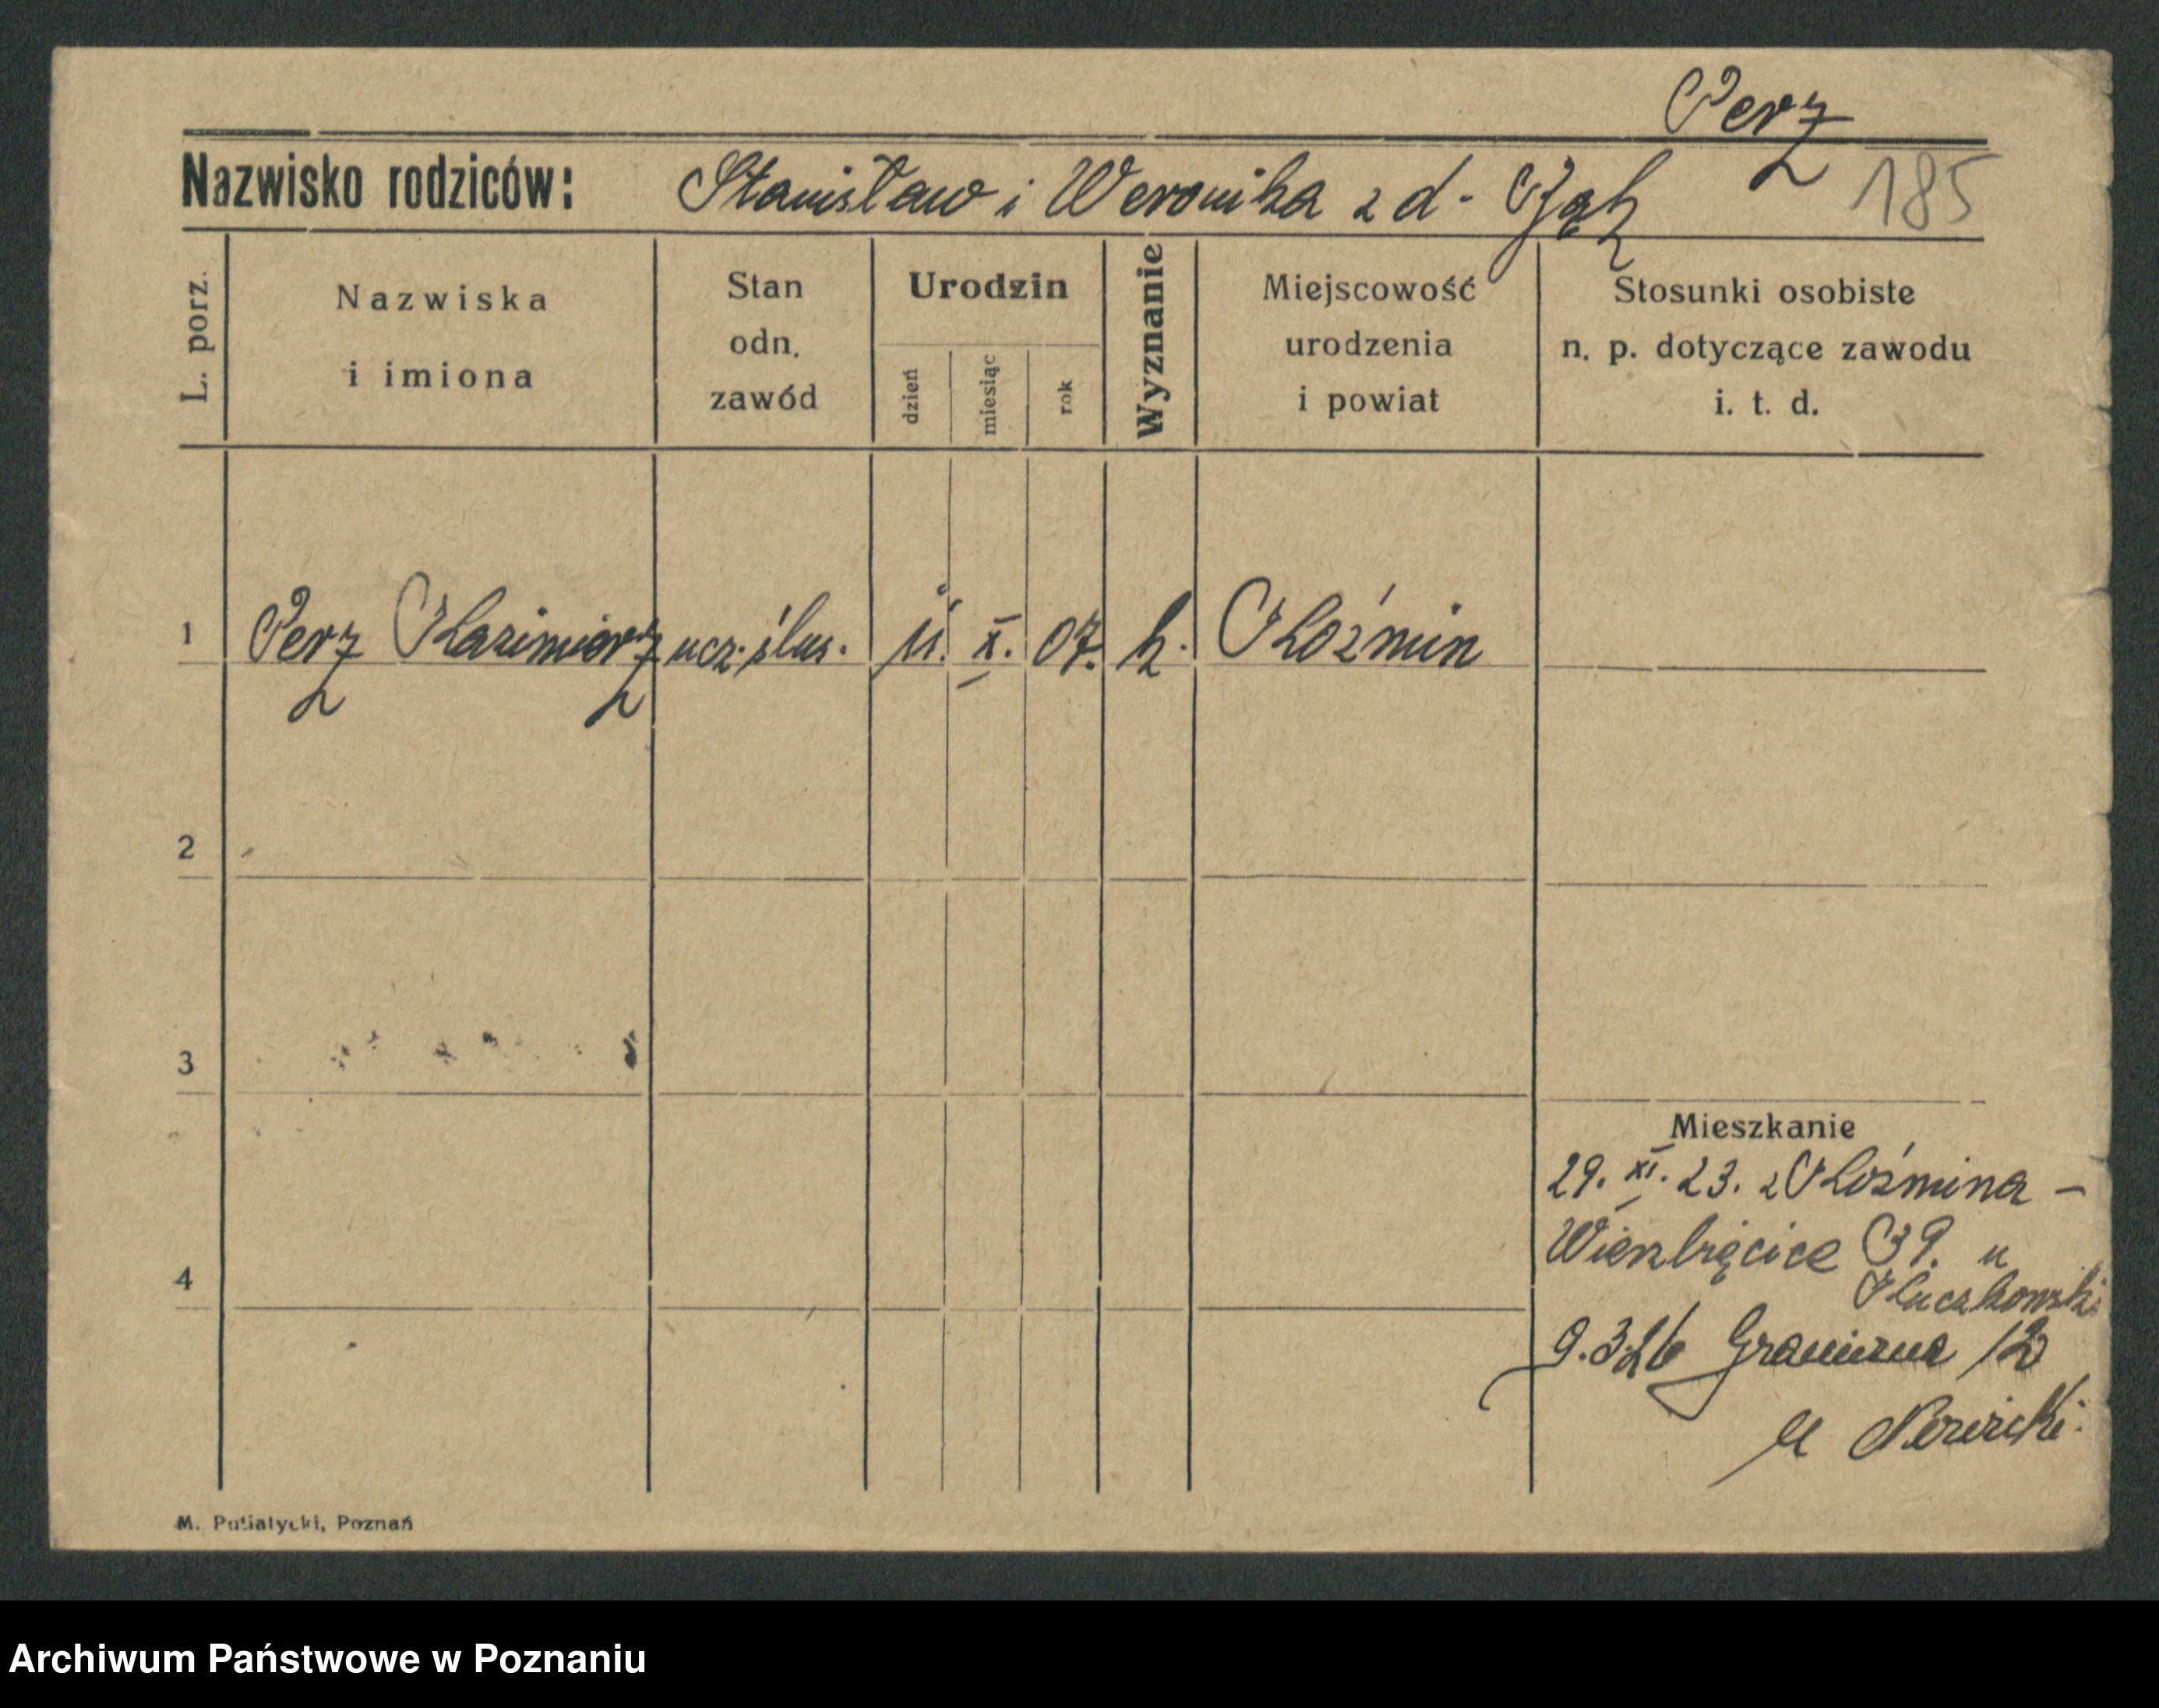 Perz
Nazwisko rodziców: Stanisław i Weronika z d.
185
L. porz.
Nazwiska
i imiona
Stan
odn.
zawód
Urodzin
dzień
miesiąc
rok
Wyznanie
Miejscowość
urodzenia
i powiat
Stosunki osobiste
n. p. dotyczące zawodu
i. t. d.
1 Perz Kazimierz ucz. ślus. 11. X. 07. k. Koźmin
2
3
4
Mieszkanie
29. XI. 23. z Koźmina –
Wierzbięcice 39. u
9.3.26 Graniczna 12
u
M. Putiatycki, Poznań
Archiwum Państwowe w Poznaniu